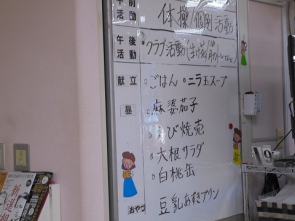 午前活動 体操/個別活動
午後活動 クラブ活動
献立 ・ごはん ・ニラ玉スープ
昼 ・麻婆茄子
・えび焼売
・大根サラダ
・白桃缶
おやつ 豆乳あずきプリン